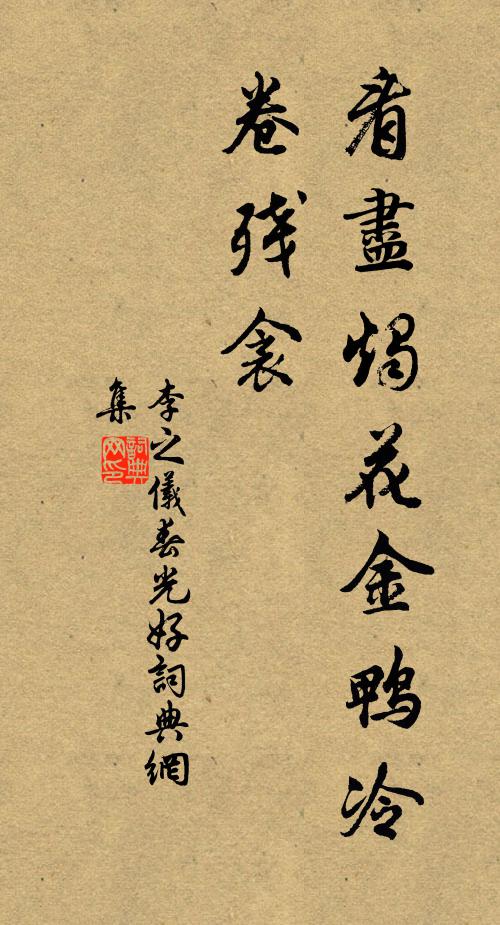 看盡燭花金鴨冷
卷殘衾
李之儀春光好詞典網
集
詞典網印